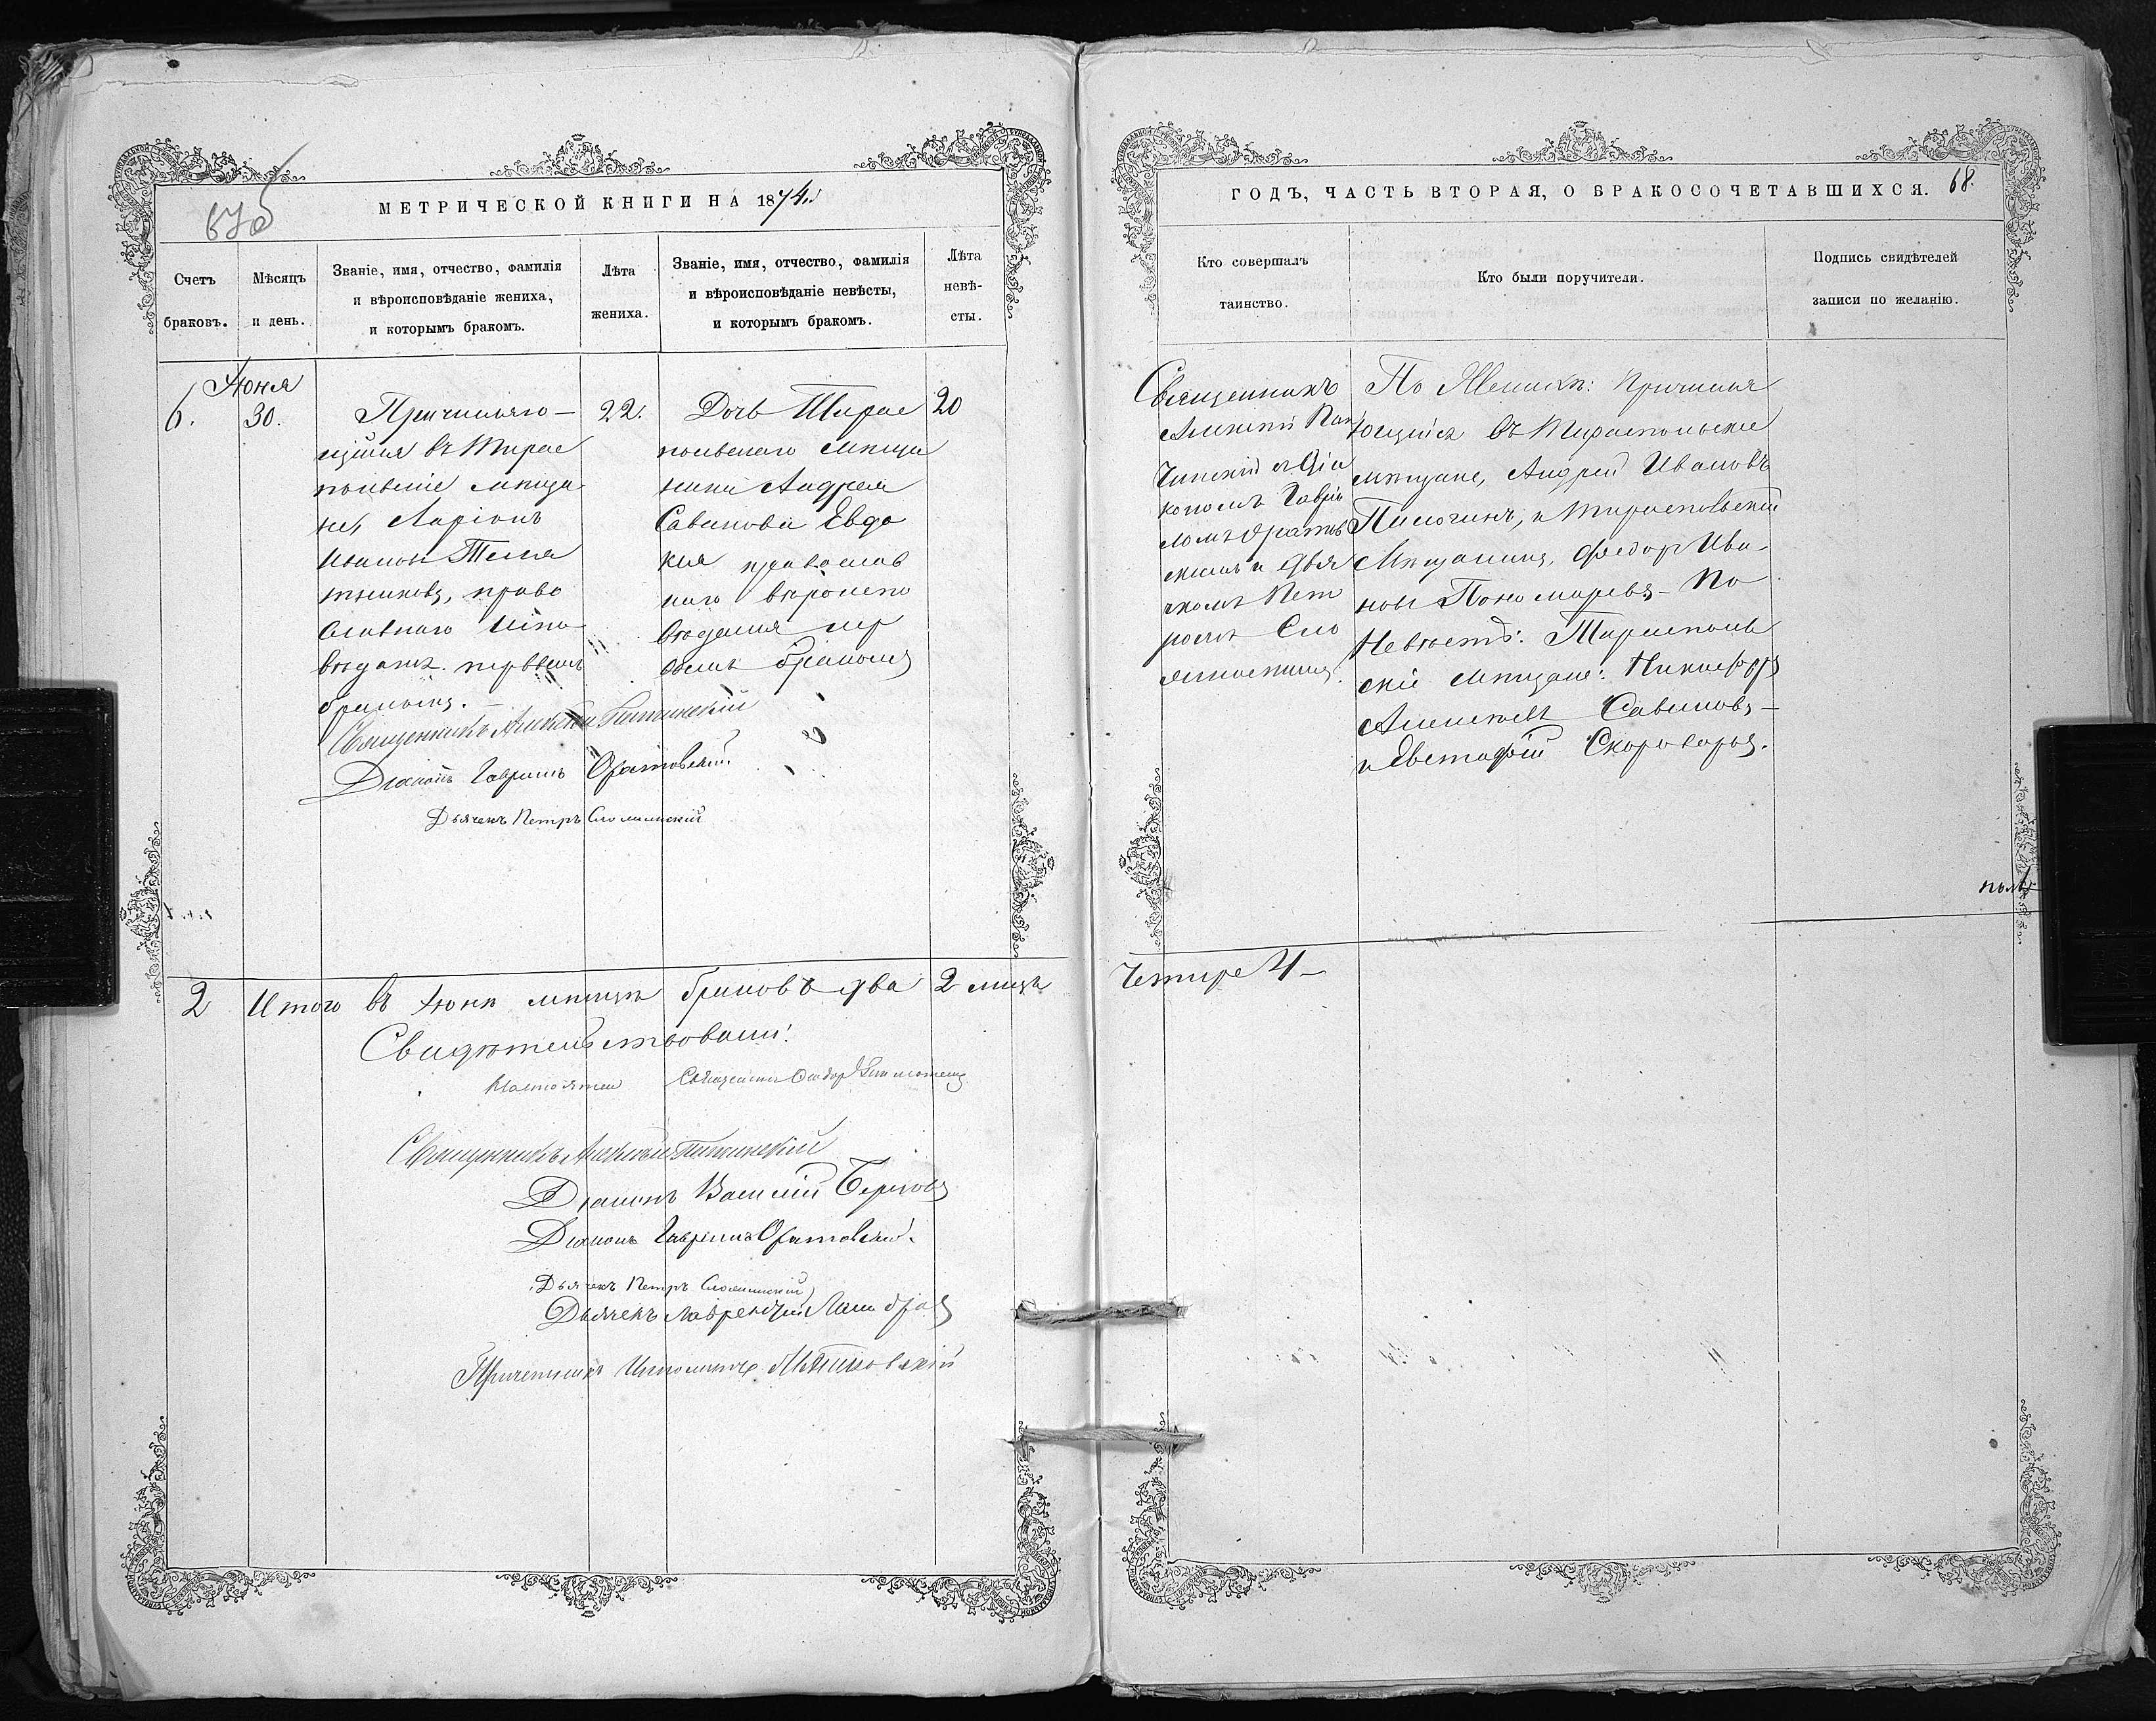 МЕТРИЧЕСКОЙ КНИГИ НА 1874.
Счетъ браковъ.
Мѣсяцъ и день.
Званіе, имя, отчество, фамилія
и вѣроисповѣданіе жениха,
и которымъ бракомъ.
Лѣта
жениха.
Званіе, имя, отчество, фамилія
и вѣроисповѣданіе невѣсты,
и которымъ бракомъ.
Лѣта
невѣ-
сты.
6.
Іюня
30.
Причисляю-
щійся въ Тирас
польскіе мѣща-
не, Ларіонъ
Ивановъ
православнаго испо
вѣданія первымъ
бракомъ.
22.
Дочь Тирас
польскаго мѣща
нина Андрея
Савинова Евдо
кія православ
наго вѣроиспо
вѣданія пер
вымъ бракомъ
20
Священникъ Алексій
Діаконъ Гавріилъ Оратовскій
Дьячекъ Петръ Сломинскій
2 Итого въ Іюнѣ мѣсяцѣ браковъ два 2 лицъ
Свидѣтельствовали:
Настоятель Священникъ
Священникъ Алексій
Діаконъ Василій
Діаконъ Гавріилъ Оратовскій.
Дьячекъ Петръ Сломинскій
Дьячекъ Лаврентій
Причетникъ
ГОДЪ, ЧАСТЬ ВТОРАЯ, О БРАКОСОЧЕТАВШИХСЯ.
68.
Кто совершалъ
таинство.
Кто были поручители.
Подпись свидѣтелей
записи по желанію.
Священникъ
Алексій
съ Діа
кономъ Гаврі
ломъ Оратов
скимъ и Дья
чкомъ Пет
ромъ Сло
минскимъ.
По Женихѣ: Причисля
ющійся въ Тираспольскіе
мѣщане, Андрей Ивановъ
и Тираспольскій
Мѣщанинъ, Ѳедоръ Ива-
новъ Пономаревъ - По
Невѣстѣ: Тирасполь
скіе мѣщане: Никифоръ
Алексѣевъ Савиновъ -
и Евстафій Скороваровъ.
Четыре 4 -